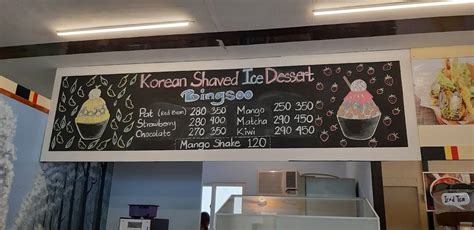 Korean Shaved Ice Dessert
Bingsoo
Pat (Red Bean) 280 350
Strawberry 290 450
Chocolate 270 350
Mango 250 350
Matcha 290 450
Kiwi 290 450
Mango Shake 120
Iced Tea